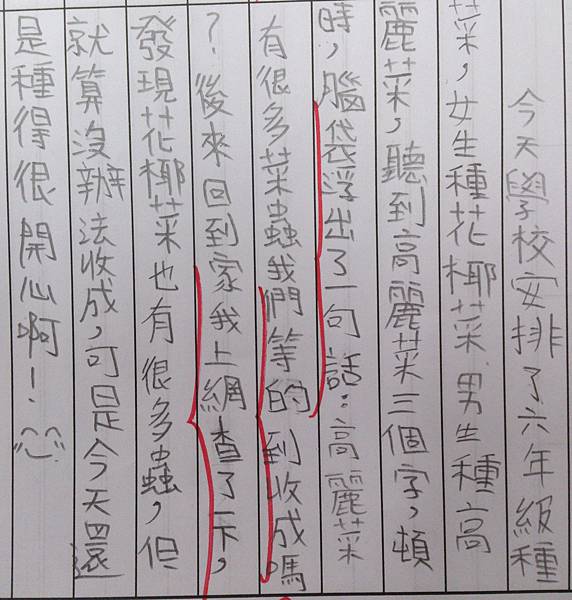 今天學校安排了六年級種
菜，女生種花椰菜男生種高
麗菜，聽到高麗菜三個字，頓
時，腦袋浮出了一句話：高麗菜
有很多菜蟲我們等的到收成嗎
？後來回到家我上網查了一下，
發現花椰菜也有很多蟲，但
就算沒辦法收成，可是今天還
是種得很開心啊！^^